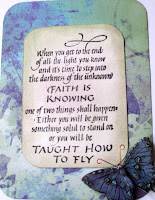 When you get to the end
of all the light you know
and it's time to step into
the darkness of the unknown
FAITH IS
KNOWING
one of two things shall happen
Either you will be given
something solid to stand on
or you will be
TAUGHT HOW
TO FLY